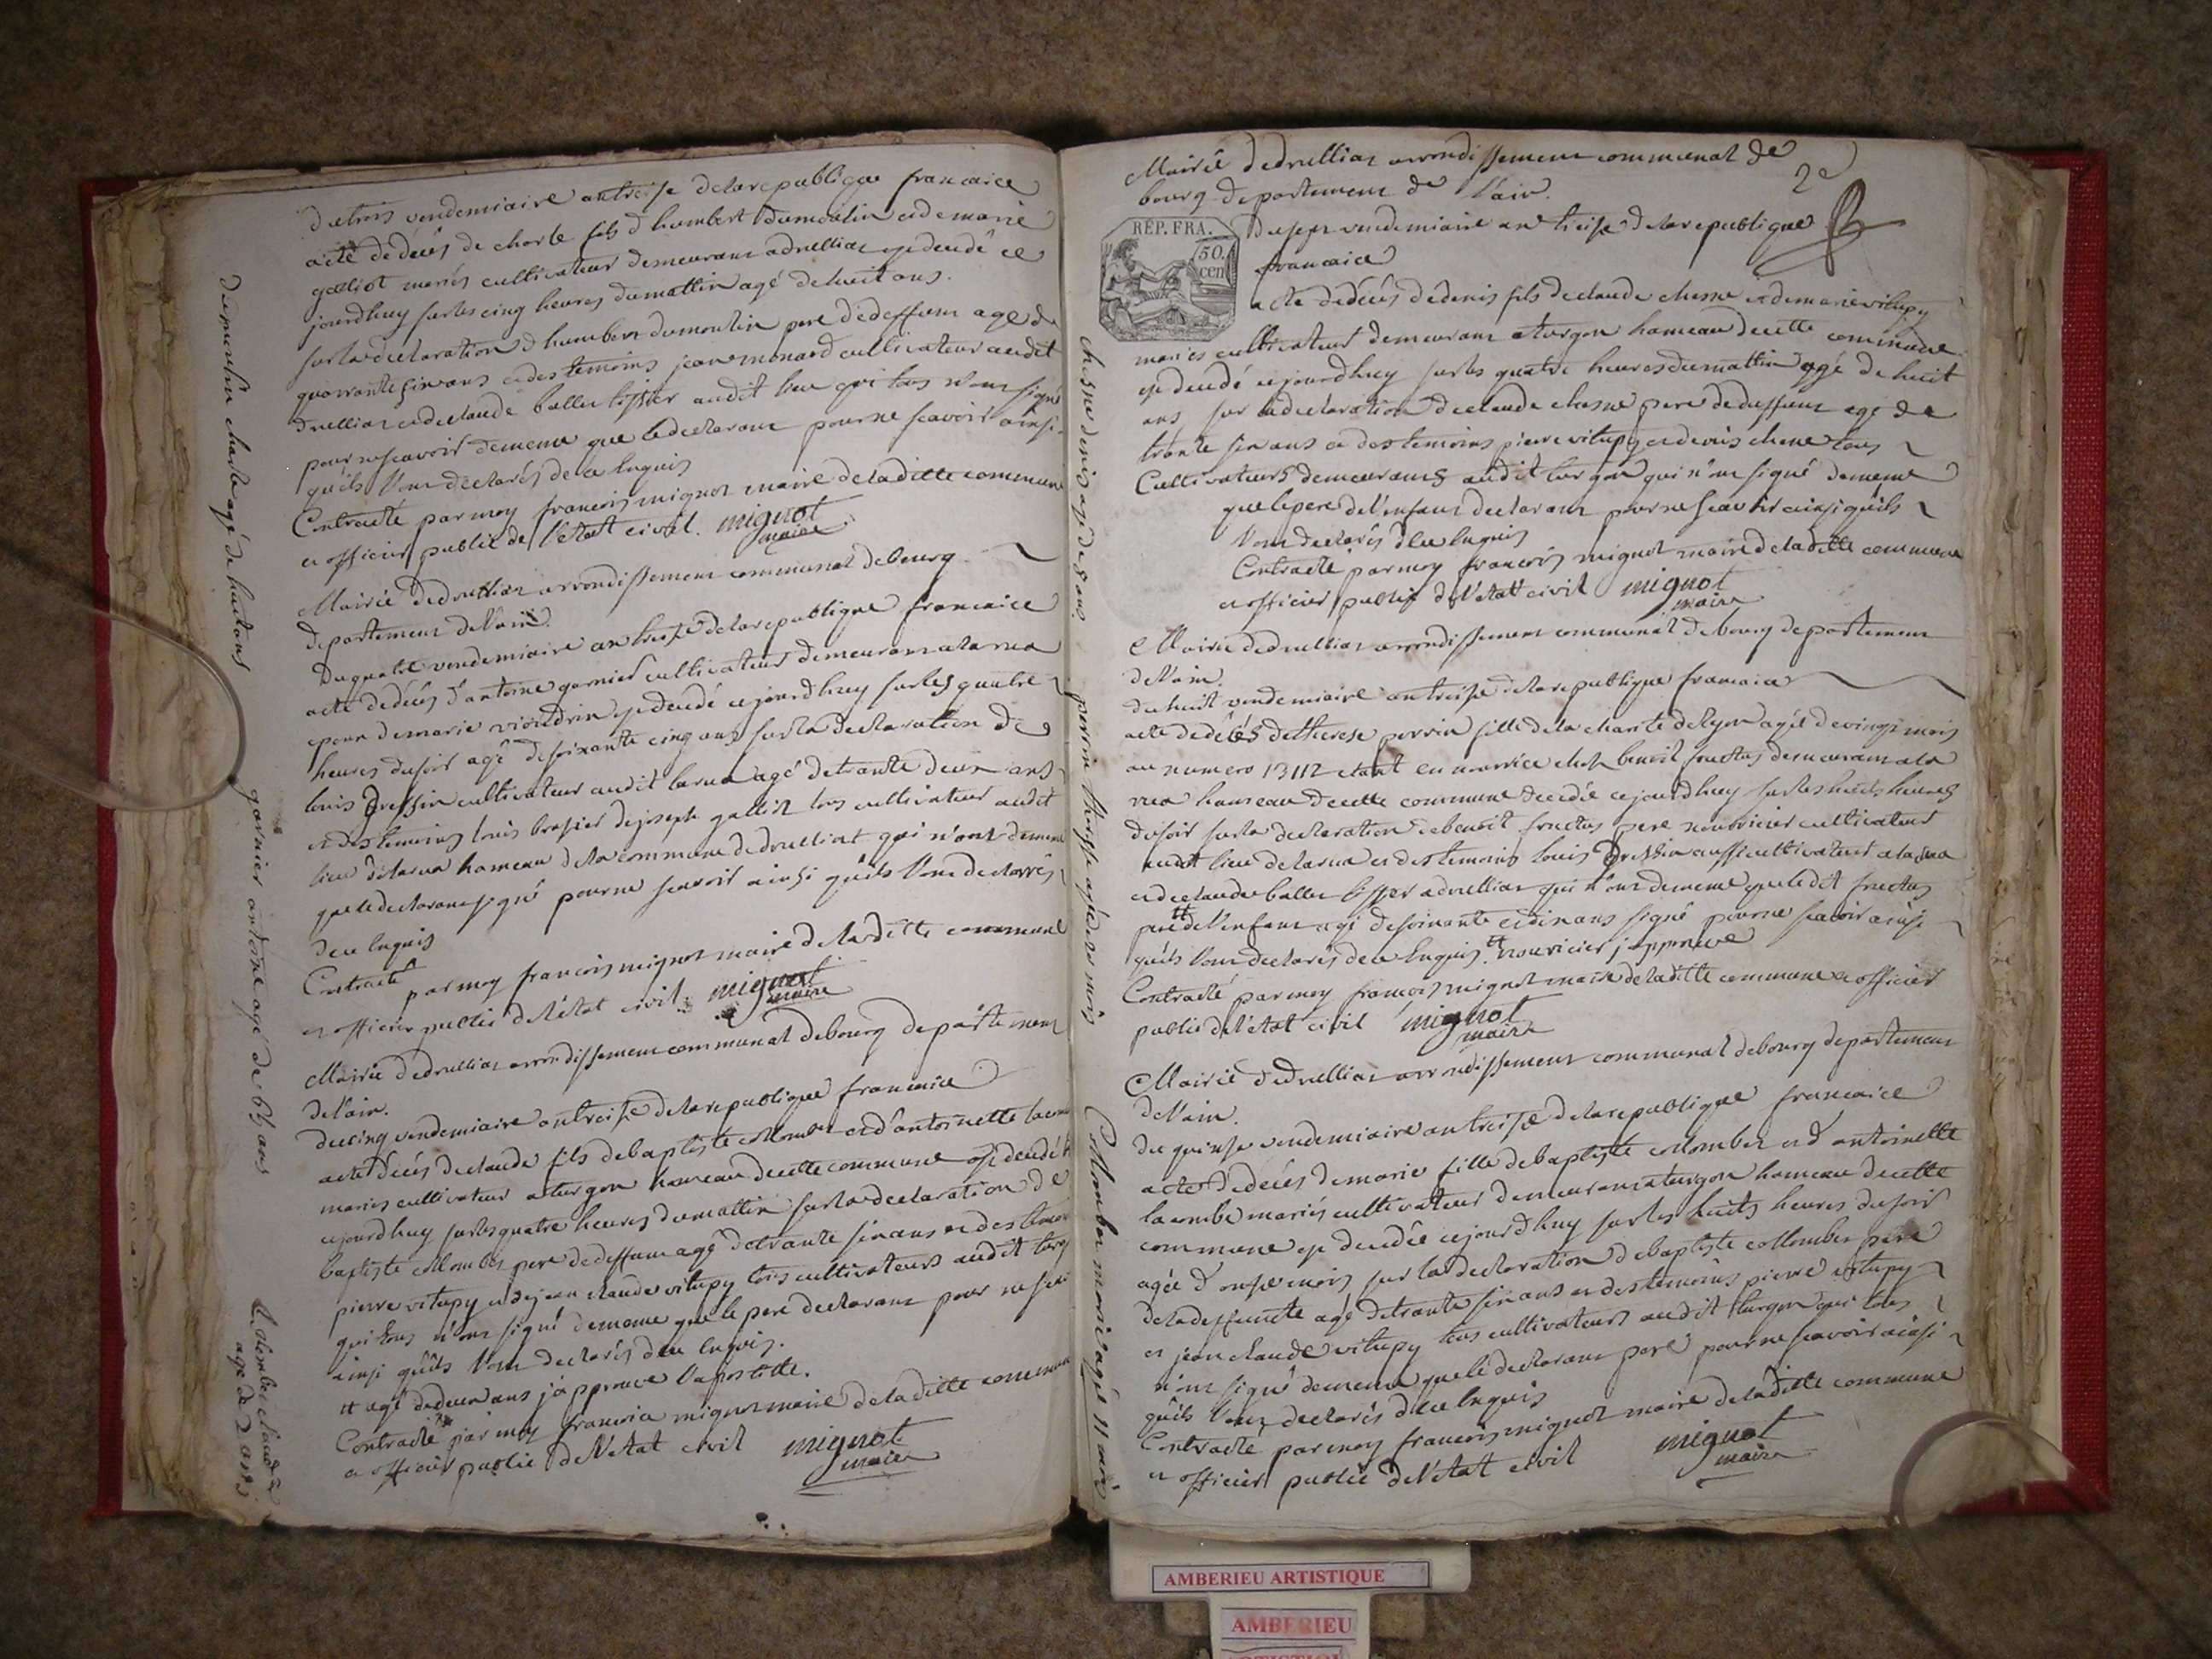 du trois vendemiaire an treise de la republique francaice
acte de décés de charle fils d humbert dumoulin et de marie
goeliot mariés cultivateur demeurant a druilliat est decedé ce
jourdhuy sur les cinq heures du mattin agé de huit ans.
sur la declaration d humbert dumoulin pere de deffunt age de
quarrante six ans et des temoins jean monard cultivateur audit
druilliat et de claude ballet tissier audit lieu qui tous n'ont signé
pour ne scavoir de meme que le declarant pour ne scavoir ainsi
qu'ils l'ont déclarés de ce enquis
Contracté par moy francois mignot maire de la ditte commune
et officier public de l'etat civil. mignot
maire
Mairie de druilliat arrondissement communal de bourg
departement de l'ain.
du quatre vendemiaire an treise de la republique francaice
acte de décés d'antoine garnier cultivateur demeurant a la rua
epoux de marie viondrin est decedé ce jourdhuy sur les quatre
heures du soir agé de soixante cinq ans sur la declaration de
louis Bressin cultivateur audit larua agé de trante deux ans
et des temoins louis brasier de joseph gallist tous cultivateur audit
lieu de larua hameau de la commune de druilliat qui n'ont de meme
que le declarant signé pour ne scavoir ainsi qu'ils l'ont declarés
de ce enquis
Contracté par moy francois mignot maire de la ditte commune
et officier public de l'état civil. mignot
maire
Mairie de druilliat arrondissement communal de bourg departement
de l'ain.
du cinq vendemiaire an treise de la republique francaice
acte décés de claude fils de baptiste collombet et d'antoinette lacombe
mariés cultivateur a turgon hameau de cette commune est decedé tt
cejourdhuy sur les quatre heures du mattin sur la declaration de
baptiste collombet pere de deffunt agé de trante six ans et des temoins
pierre vitupy et de jean claude vitupy tous cultivateurs audit turgon
qui tous n'ont signé de meme que le pere declarant pour ne scavoir
ainsi qu'ils l'ont declarés de ce enquis.
tt agé de deux ans j'approuve l'apostille.
Contracté par moy francois mignot maire de la ditte commune
et officier public de l'etat civil mignot
maire
dumoulin charle agé de huit ans
garnier antoine agé de 65 ans
Collombet claude
agé de 2 ans
Mairie de druilliat arrondissement communal de
bourg departement de l'ain.
2e
RÉP. FRA.
50.
cen
du sept vendemiaire an treise de la republique
francaice
acte de décés de denis fils de claude chesne et de marie vitupy
mariés cultivateur demeurant a turgon hameau de cette commune
est decedé ce jourdhuy sur les quatre heures du mattin agé de huit
ans sur la declaration de claude chesne pere de deffunt agé de
trante six ans et des temoins pierre vitupy et denis chene tous
Cultivateurs demeurants audit turgon qui n'ont signé de meme
que le pere de l'enfant declarant pour ne scavoir ainsi qu'ils
l'ont declarés de ce enquis
Contracté par moy francois mignot maire de la ditte commune
et officier public de l'etat civil mignot
maire
Mairie de druilliat arrondissement communal de bourg departement
de l'ain.
du huit vendemiaire an treise de la republique francaice
acte de décés de therese perrin fille de la charité de lyon agée de vingt mois
au numero 13112 etant en nourrice chez benoit fructus demeurant a la
rua hameau de cette commune decedée ce jourdhuy sur les huits heures
du soir sur la declaration de benoit fructus pere nourricier cultivateur
audit lieu de larua et des temoins louis Bressin aussi cultivateur a la rua
et de claude ballet tissier a druilliat qui n'ont de meme que le dit fructus
pere tt de l'enfant agé de soixante et dix ans signé pour ne scavoir ainsi
qu'ils l'ont declarés de ce enquis. tt nouricier j'approuve
Contracté par moy francois mignot maire de la ditte commune et officier
public de l'etat civil mignot
maire
Mairie de druilliat arrondissement communal de bourg departement
de l'ain.
du quinse vendemiaire an treise de la republique francaice
acte de décés de marie fille de baptiste collombet et d'antoinette
lacombe mariés cultivateur demeurant a turgon hameau de cette
commune est decedée ce jourdhuy sur les huits heures du soir
agée d'onse mois sur la declaration de baptiste collombet pere
de la deffuncte agé de trante six ans et des temoins pierre vitupy
et jean claude vitupy tous cultivateurs audit turgon qui tous
n'ont signé de meme que le declarant pere pour ne scavoir ainsi
qu'ils l'ont declarés de ce enquis
Contracté par moy francois mignot maire de la ditte commune
et officier public de l'etat civil mignot
maire
chesne denis agé de 8 ans
perrin therese agée de 20 mois
Collombet marie agée 11 mois
AMBERIEU ARTISTIQUE
AMBERIEU